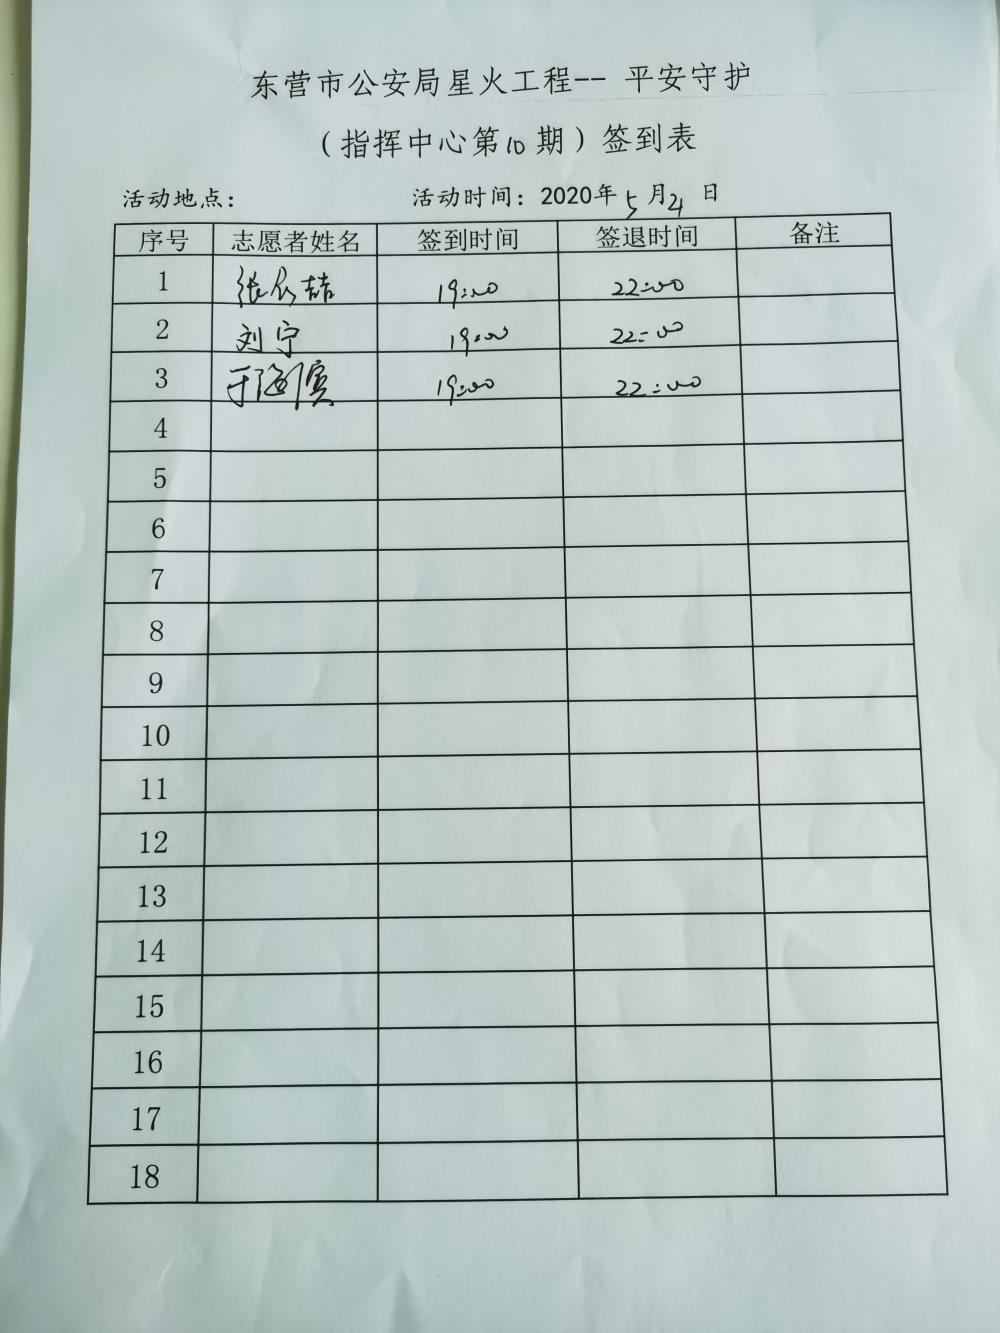 东营市公安局星火工程-- 平安守护
（指挥中心第10期）签到表
活动地点： 活动时间：2020年5月4日
序号 志愿者姓名 签到时间 签退时间 备注
1 张 喆 19:00 22:00
2 刘宁 19:00 22:00
3 于海 19:00 22:00
4
5
6
7
8
9
10
11
12
13
14
15
16
17
18